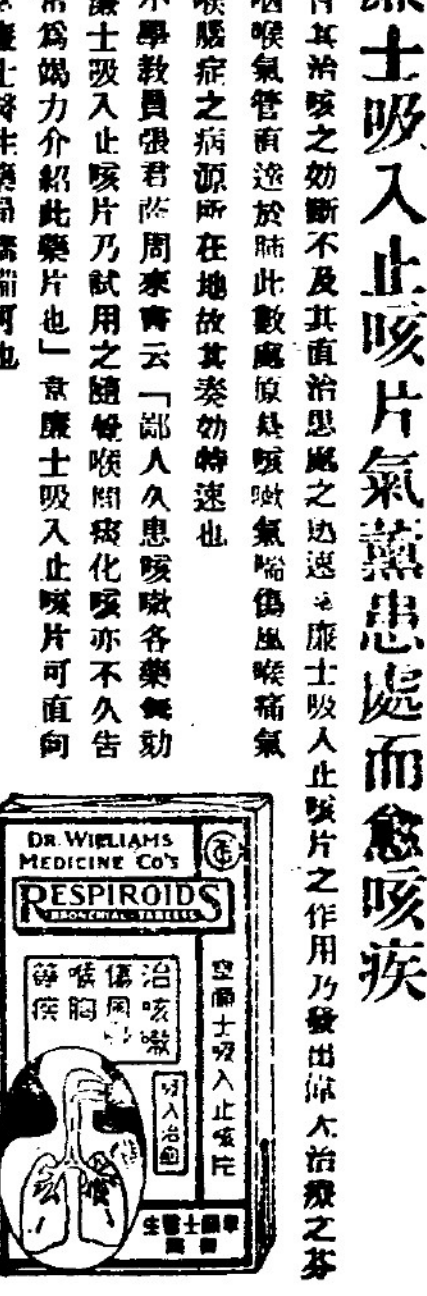 廉士吸入止咳片氣薰患處而愈咳疾
其治咳之効斷不及其直治患處之迅速 廉士吸入止咳片之作用乃發出偉大治療之芬
咽喉氣管直達於肺此數處原是咳嗽氣喘傷風喉痛氣
喉腸症之病源所在地故其奏効特速也
小學教員張君 周來書云「鄙人久患咳嗽各藥無効
廉士吸入止咳片乃試用之隨覺喉間痰化咳亦不久告
常為竭力介紹此藥片也」韋廉士吸入止咳片可直向
韋廉士醫生藥局 可也
DR. WILLIAMS
MEDICINE CO'S
RESPIROIDS
BRONCHIAL TABLETS
治咳嗽
傷風
喉胸
等疾
吸入治愈
韋廉士吸入止咳片
韋廉士醫生
藥局